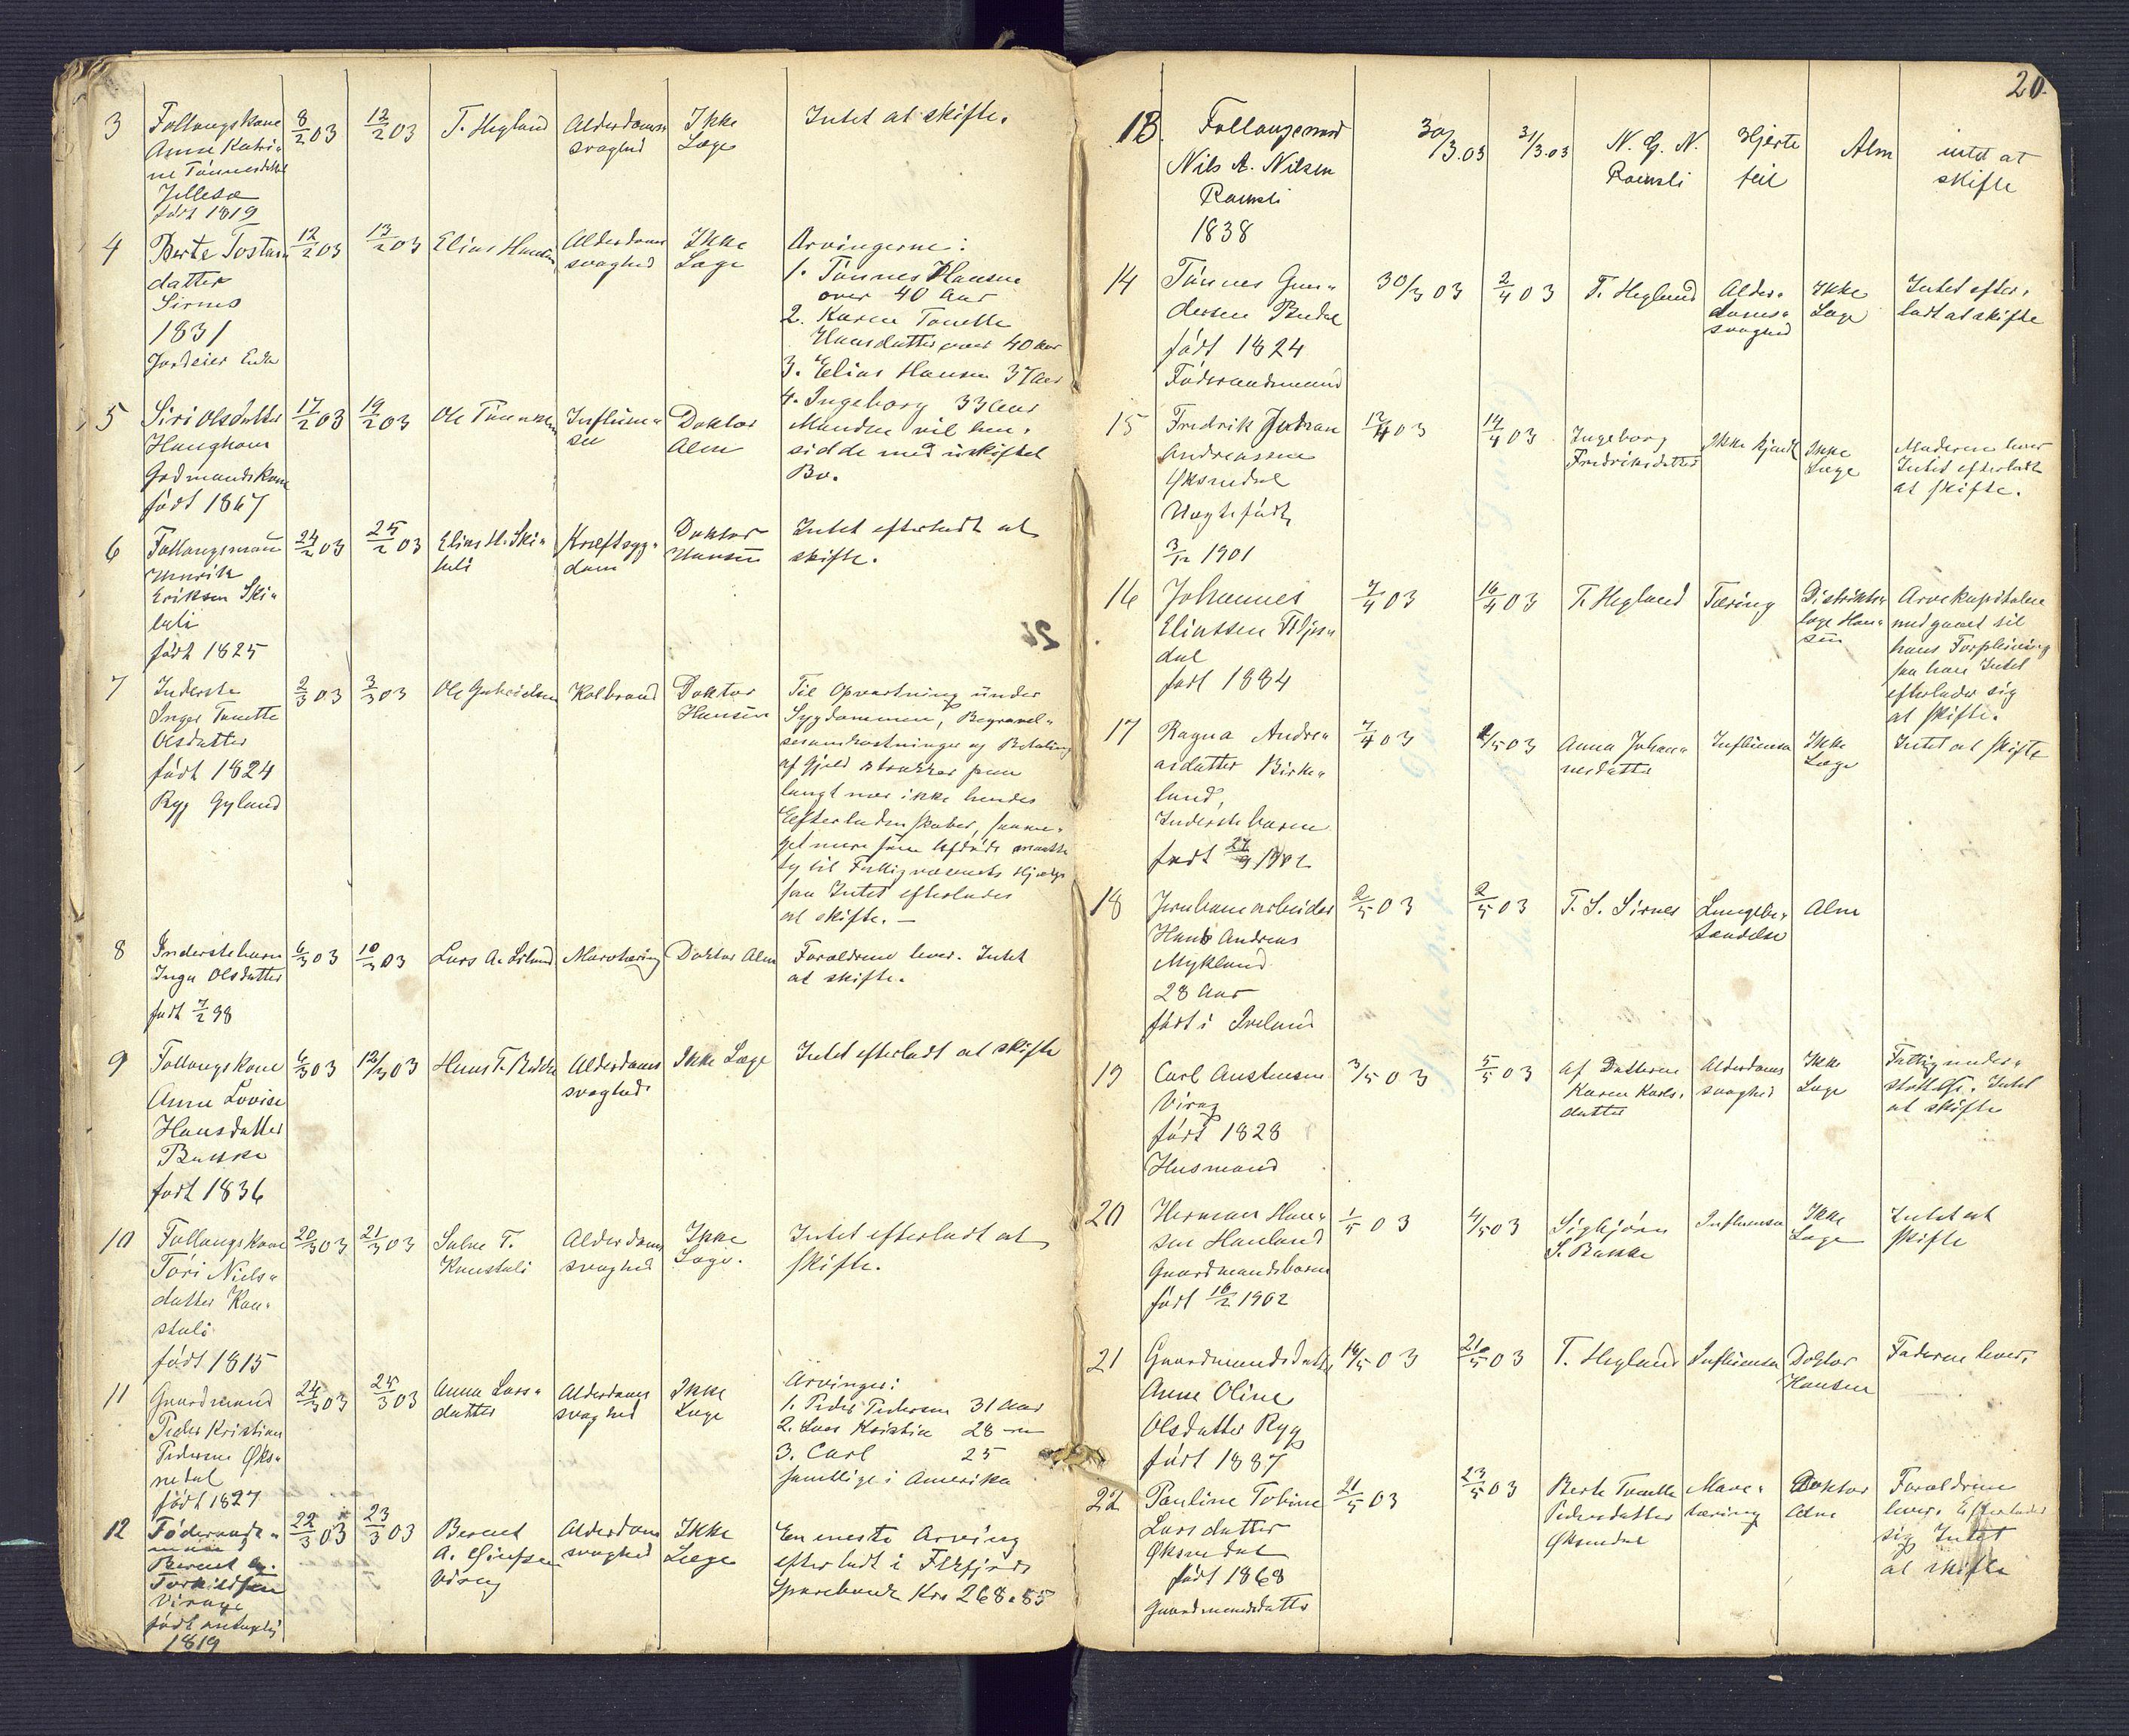 3
Follaugskone
Anne Katri-
ne Tønnesdatter
født 1819
8/2 03
12/2 03
T. Hegland
Alderdoms-
svaghed
Ikke
Læge
Intet at skifte.
4
Berte Tostens
datter
Sirnes
1831
Jordeier Enke
12/2 03
13/2 03
Elias Hansen
Alderdoms
svaghed
Ikke
Læge
Arvingerne:
1. Tønnes Hansen
over 40 Aar
2. Karen Tonette
Hansdatter over 40 Aar
3. Elias Hansen 37 Aar
4. Ingeborg 33 Aar
5
Siri Olsdatter
Haughom
Gaardmandskone
født 1867
17/2 03
19/2 03
Ole Tønnesen
Influen-
za
Doktor
Alm
Manden vil hen-
sidde med uskiftet
Bo.
6
Follaugsmand
Henrik
Eriksen Ski-
leli
født 1825
24/2 03
25/2 03
Elias H. Ski-
leli
Kræftsyg-
dom
Doktor
Hansen
Intet efterladt at
skifte.
7
Inderste
Inger Tonette
Olsdatter
født 1824
Ryg Gyland
2/3 03
3/3 03
Ole
Kolbrand
Doktor
Hansen
Til Opvartning under
Sygdommen, Begravel-
sesomkostninger og Betaling
af Gjeld strækker paa
langt nær ikke hendes
Efterladenskaber, saame-
get mere som Afdøde maatte
ty til Fattigvæsenets Hjælp
saa Intet efterlades
at skifte. —
8
Inderstebarn
Inga Olsdatter
født 7/2 98
6/3 03
10/3 03
Lars A.
Marvtæring
Doktor Alm
Forældrene lever. Intet
at skifte.
9
Follaugskone
Anne Lovise
Hansdatter
Buskе
født 1836
6/3 03
12/3 03
Hans T.
Alderdoms
svaghed.
Ikke Læge
Intet efterladt at skifte
10
Follaugskone
Tori Niels-
datter Kon-
stali
født 1815
20/3 03
21/3 03
Salve T.
Konstali
Alderdoms
svaghed
Ikke
Læge.
Intet efterladt at
skifte.
11
Gaardmand
Peder Kristian
Pedersen Øks-
nedal
født 1827
24/3 03
25/3 03
Anna Lars-
datter
Alderdoms
svaghed
Ikke
Læge
Arvinger:
1. Peder Pedersen 31 Aar
2. Lars Kristian 28 —
3. Carl 25
samtlige i Amerika
12
Føderaads-
mand
Berent
Torkildsen
Virage
født antagelig
1819
22/3 03
23/3 03
Berent
A.
Virag
Alderdoms
svaghed
Ikke
Læge
Eneneste Arving
efterladt i Flekkefjords
Sparebank Kr. 268.85
20.
13.
Follaugsmand
Nils A. Nilsen
Ramsli
1838
30/3.03
31/3.03
N. G. N.
Ramsli
Hjerte
feil
Alm
intet at
skifte
14
Tønnes Gun-
dersen Budal
født 1824
Føderaadsmand
30/3 03
2/4 03
T. Hegland
Alder-
doms-
svaghed
Ikke
Læge
Intet efter-
ladt at skifte
15
Fredrik Johan
Andreassen
Øksnedal
Uægtefødt
3/12 1901
12/4 03
14/4 03
Ingeborg
Fredriksdatter
Ikke kjendt
Ikke
Læge
Moderen lever
Intet efterladt
at skifte.
16
Johannes
Eliassen
dal
født 1884
7/4 03
16/4 03
T. Hegland
Tæring
Distrikts-
læge Han-
sen
Arvekapitalen
medgaaet til
hans Forpleining
saa han Intet
efterlader sig
at skifte.
17
Ragna Andre-
asdatter Birke-
land,
Inderstebarn
født
7/4 03
/5 03
Anna Johan-
nesdatter
Influensa
Ikke
Læge
Intet at skifte
18
Jernbanearbeider
Hans Andreas
Mykland
28 Aar
født i Iveland
2/5 03
2/5 03
T. S. Sirnes
Lungebe-
tændelse
Alm
19
Carl Austensen
Virag
født 1828
Husmand
3/5 03
5/5 03
af Datteren
Karen Karls-
datter
Alderdoms
svaghed
Ikke
Læge
Fattigunder-
støttelse. Intet
at skifte
20
Herman Han-
sen Hauland
Gaardmandsbarn
født 16/2 1902
1/5 03
4/5 03
Sigbjørn
S. Buske
Influensa
Ikke
Læge
Intet at
skifte
21
Gaardmandsdatter
Anne Oline
Olsdatter Ryg
født 1887
16/5 03
21/5 03
T. Hegland
Influensa
Doktor
Hansen
Faderen lever.
22
Pauline Tobine
Larsdatter
Øksnedal
født 1868
Gaardmandsdatter
21/5 03
23/5 03
Berte Tonette
Pedersdatter
Øksnedal
Marv-
tæring
Doktor
Alm
Forældrene
lever. Efterlader
sig Intet
at skifte